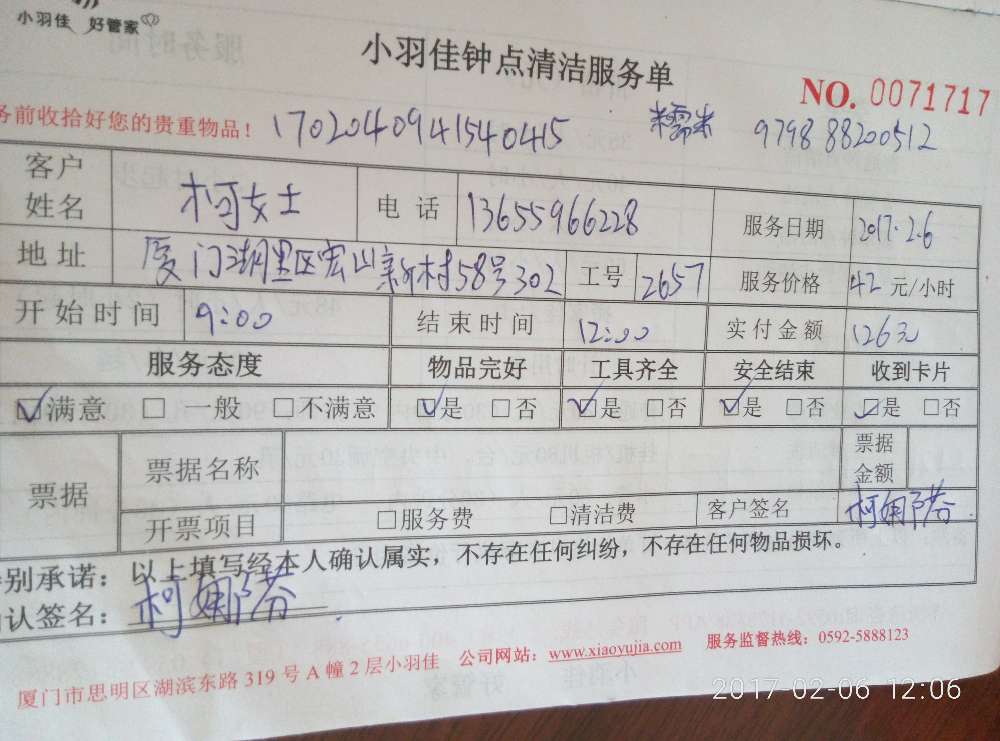 小羽佳 好管家
小羽佳钟点清洁服务单
NO. 0071717
务前收拾好您的贵重物品！ 1702040941540415 糯米 9798 88200512
客户姓名 柯女士 电话 13655966228 服务日期 2017.2.6
地址 厦门湖里区宏山新村58号302 工号 2657 服务价格 42 元/小时
开始时间 9:00 结束时间 12:00 实付金额 126元
服务态度 物品完好 工具齐全 安全结束 收到卡片
☑满意 □一般 □不满意 ☑是 □否 ☑是 □否 ☑是 □否 ☑是 □否
票据 票据名称 票据金额
开票项目 □服务费 □清洁费 客户签名 柯娜芬
别承诺：以上填写经本人确认属实，不存在任何纠纷，不存在任何物品损坏。
认签名：柯娜芬
厦门市思明区湖滨东路 319 号 A 幢 2 层小羽佳 公司网站：www.xiaoyujia.com 服务监督热线：0592-5888123
2017-02-06 12:06